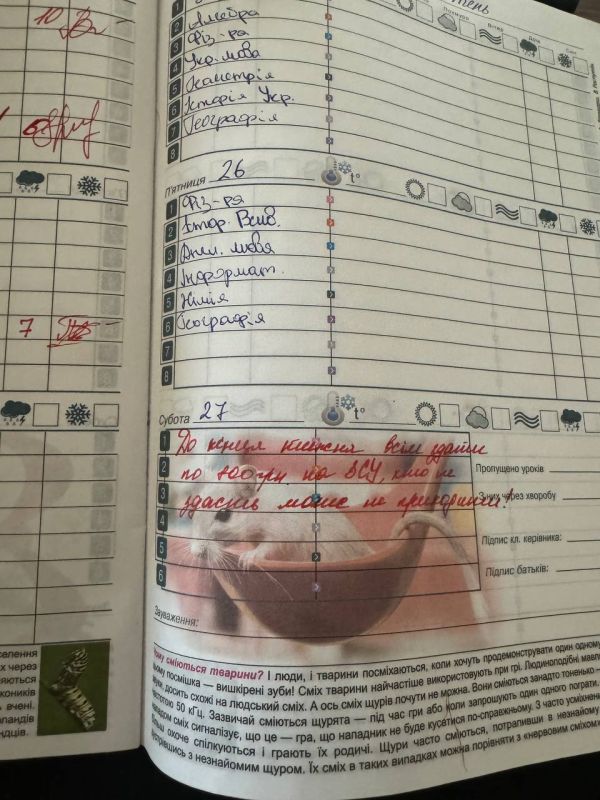 10
6
7
тень
2 Алгебра
3 Фіз-ра
4 Укр. мова
5 Геометрія
6 Історія Укр.
7 Географія
8
П'ятниця 26
t°
1 Фіз-ра
2 Істор. Всв.
3 Англ. мова
4 Інформат.
5 Хімія
6 Географія
7
8
Субота 27
t°
1 До кінця тижня всім здати
2 по 200грн на ЗСУ, хто не
3 здасть може не приходити!
4
5
6
Пропущено уроків
З них через хворобу
Підпис кл. керівника:
Підпис батьків:
Зауваження:
сміються тварини? І люди, і тварини посміхаються, коли хочуть продемонструвати один одному
посмішка — вишкірені зуби! Сміх тварини найчастіше використовують при грі. Людиноподібні мавпи
досить схожі на людський сміх. А ось сміх щурів почути не можна. Вони сміються занадто тоненько
50 кГц. Зазвичай сміються щурята — під час гри або коли запрошують один одного пограти.
сміх сигналізує, що це — гра, що нападник не буде кусатися по-справжньому. З часто усміхненими
охоче спілкуються і грають їх родичі. Щури часто сміються, потрапивши в незнайому
з незнайомим щуром. Їх сміх в таких випадках можна порівняти з «нервовим сміхом»
селення
х через
ляються
коників
вчені.
ландів
ндців.